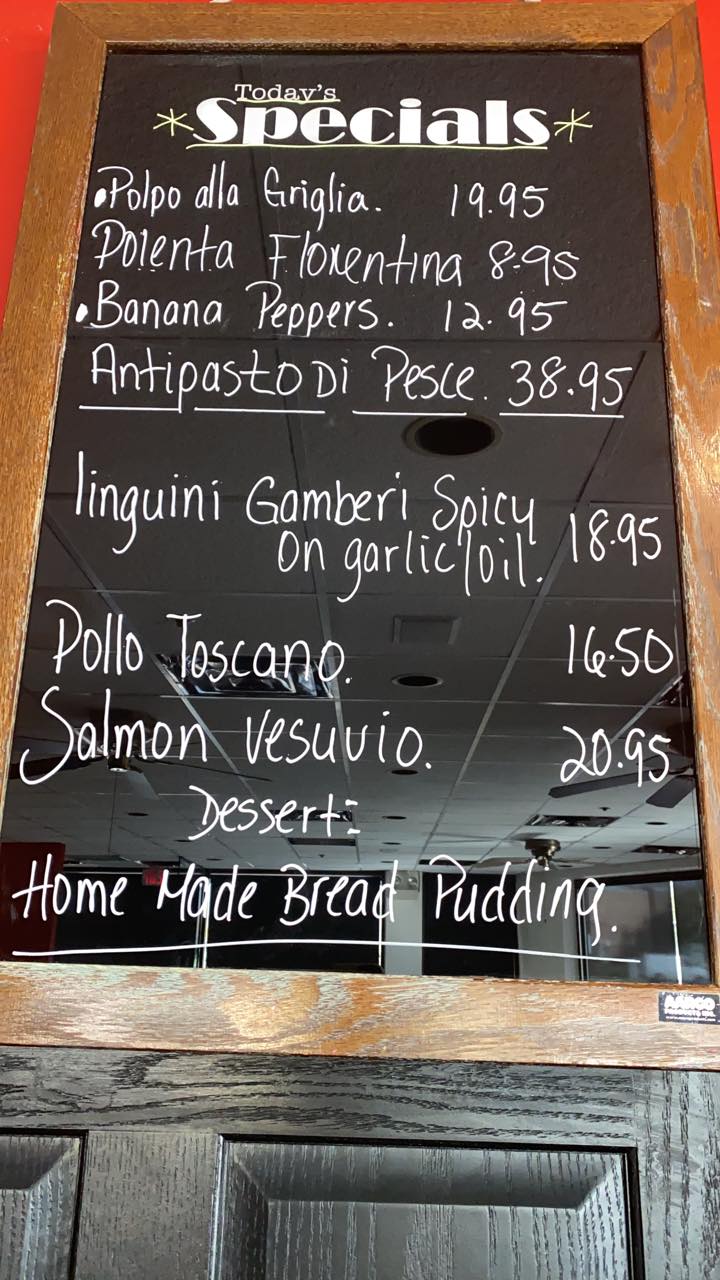 Today's
*Specials*
•Polpo alla Griglia. 19.95
Polenta Florentina 8.95
•Banana Peppers. 12.95
Antipasto Di Pesce. 38.95
linguini Gamberi Spicy
On garlic/oil. 18.95
Pollo Toscano. 16.50
Salmon Vesuvio. 20.95
Dessert:
Home Made Bread Pudding.
AARCO